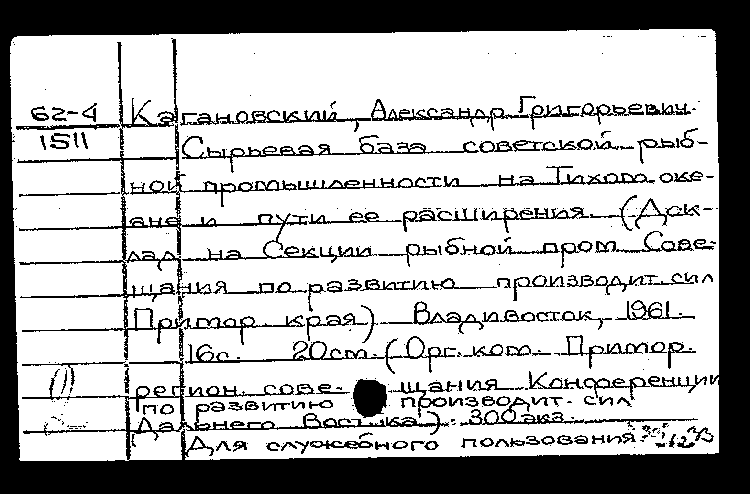 62-4 Кагановский, Александр Григорьевич.
1511 Сырьевая база советской рыб-
ной промышленности на Тихом оке-
ане и пути ее расширения. (Док-
лад на Секции рыбной пром Сове-
щания по развитию производит. сил
Примор края) Владивосток, 1961.
16с. 20см. (Орг. ком. Примор.
регион. сове- щания Конференции
по развитию производит. сил
Дальнего Вост.ка). 300 экз.
Для служебного пользования